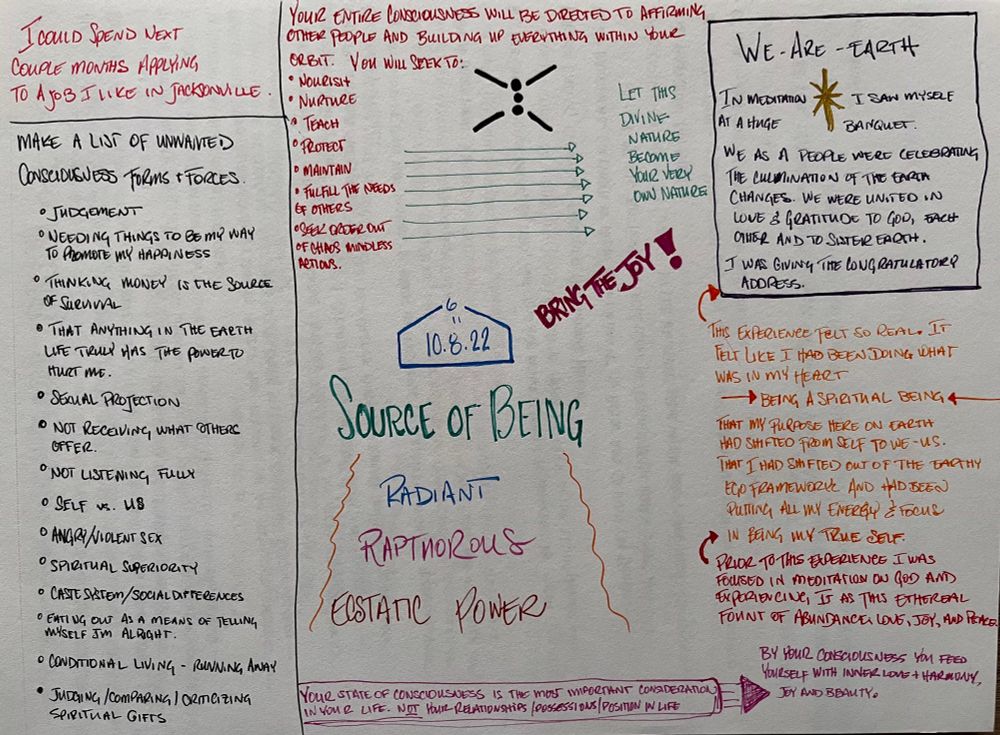 I COULD SPEND NEXT
COUPLE MONTHS APPLYING
TO A JOB I LIKE IN JACKSONVILLE.
MAKE A LIST OF UNWANTED
CONSCIOUSNESS FORMS + FORCES.
• JUDGEMENT
• NEEDING THINGS TO BE MY WAY
TO PROMOTE MY HAPPINESS
• THINKING MONEY IS THE SOURCE
OF SURVIVAL
• THAT ANYTHING IN THE EARTH
LIFE TRULY HAS THE POWER TO
HURT ME.
• SEXUAL PROJECTION
• NOT RECEIVING WHAT OTHERS
OFFER.
• NOT LISTENING FULLY
• SELF VS. US
• ANGRY/VIOLENT SEX
• SPIRITUAL SUPERIORITY
• CASTE SYSTEM/SOCIAL DIFFERENCES
• EATING OUT AS A MEANS OF TELLING
MYSELF I'M ALRIGHT.
• CONDITIONAL LIVING - RUNNING AWAY
• JUDGING/COMPARING/CRITICIZING
SPIRITUAL GIFTS
YOUR ENTIRE CONSCIOUSNESS WILL BE DIRECTED TO AFFIRMING
OTHER PEOPLE AND BUILDING UP EVERYTHING WITHIN YOUR
ORBIT. YOU WILL SEEK TO:
• NOURISH
• NURTURE
• TEACH
• PROTECT
• MAINTAIN
• FULFILL THE NEEDS
OF OTHERS
• SEEK ORDER OUT
OF CHAOS MINDLESS
ACTIONS.
LET THIS
DIVINE
NATURE
BECOME
YOUR VERY
OWN NATURE
BRING THE JOY!
6
"
10.8.22
SOURCE OF BEING
RADIANT
RAPTHOROUS
ECSTATIC POWER
YOUR STATE OF CONSCIOUSNESS IS THE MOST IMPORTANT CONSIDERATION
IN YOUR LIFE. NOT YOUR RELATIONSHIPS/POSSESSIONS/POSITION IN LIFE
BY YOUR CONSCIOUSNESS YOU FEED
YOURSELF WITH INNER LOVE + HARMONY,
JOY AND BEAUTY.
WE-ARE-EARTH
IN MEDITATION I SAW MYSELF
AT A HUGE BANQUET.
WE AS A PEOPLE WERE CELEBRATING
THE CULMINATION OF THE EARTH
CHANGES. WE WERE UNITED IN
LOVE & GRATITUDE TO GOD, EACH
OTHER AND TO SISTER EARTH.
I WAS GIVING THE CONGRATULATORY
ADDRESS.
THIS EXPERIENCE FELT SO REAL. IT
FELT LIKE I HAD BEEN DOING WHAT
WAS IN MY HEART
BEING A SPIRITUAL BEING
THAT MY PURPOSE HERE ON EARTH
HAD SHIFTED FROM SELF TO WE-US.
THAT I HAD SHIFTED OUT OF THE EARTHY
EGO FRAMEWORK AND HAD BEEN
PUTTING ALL MY ENERGY & FOCUS
IN BEING MY TRUE SELF.
PRIOR TO THIS EXPERIENCE I WAS
FOCUSED IN MEDITATION ON GOD AND
EXPERIENCING IT AS THIS ETHEREAL
FOUNT OF ABUNDANCE, LOVE, JOY, AND PEACE.